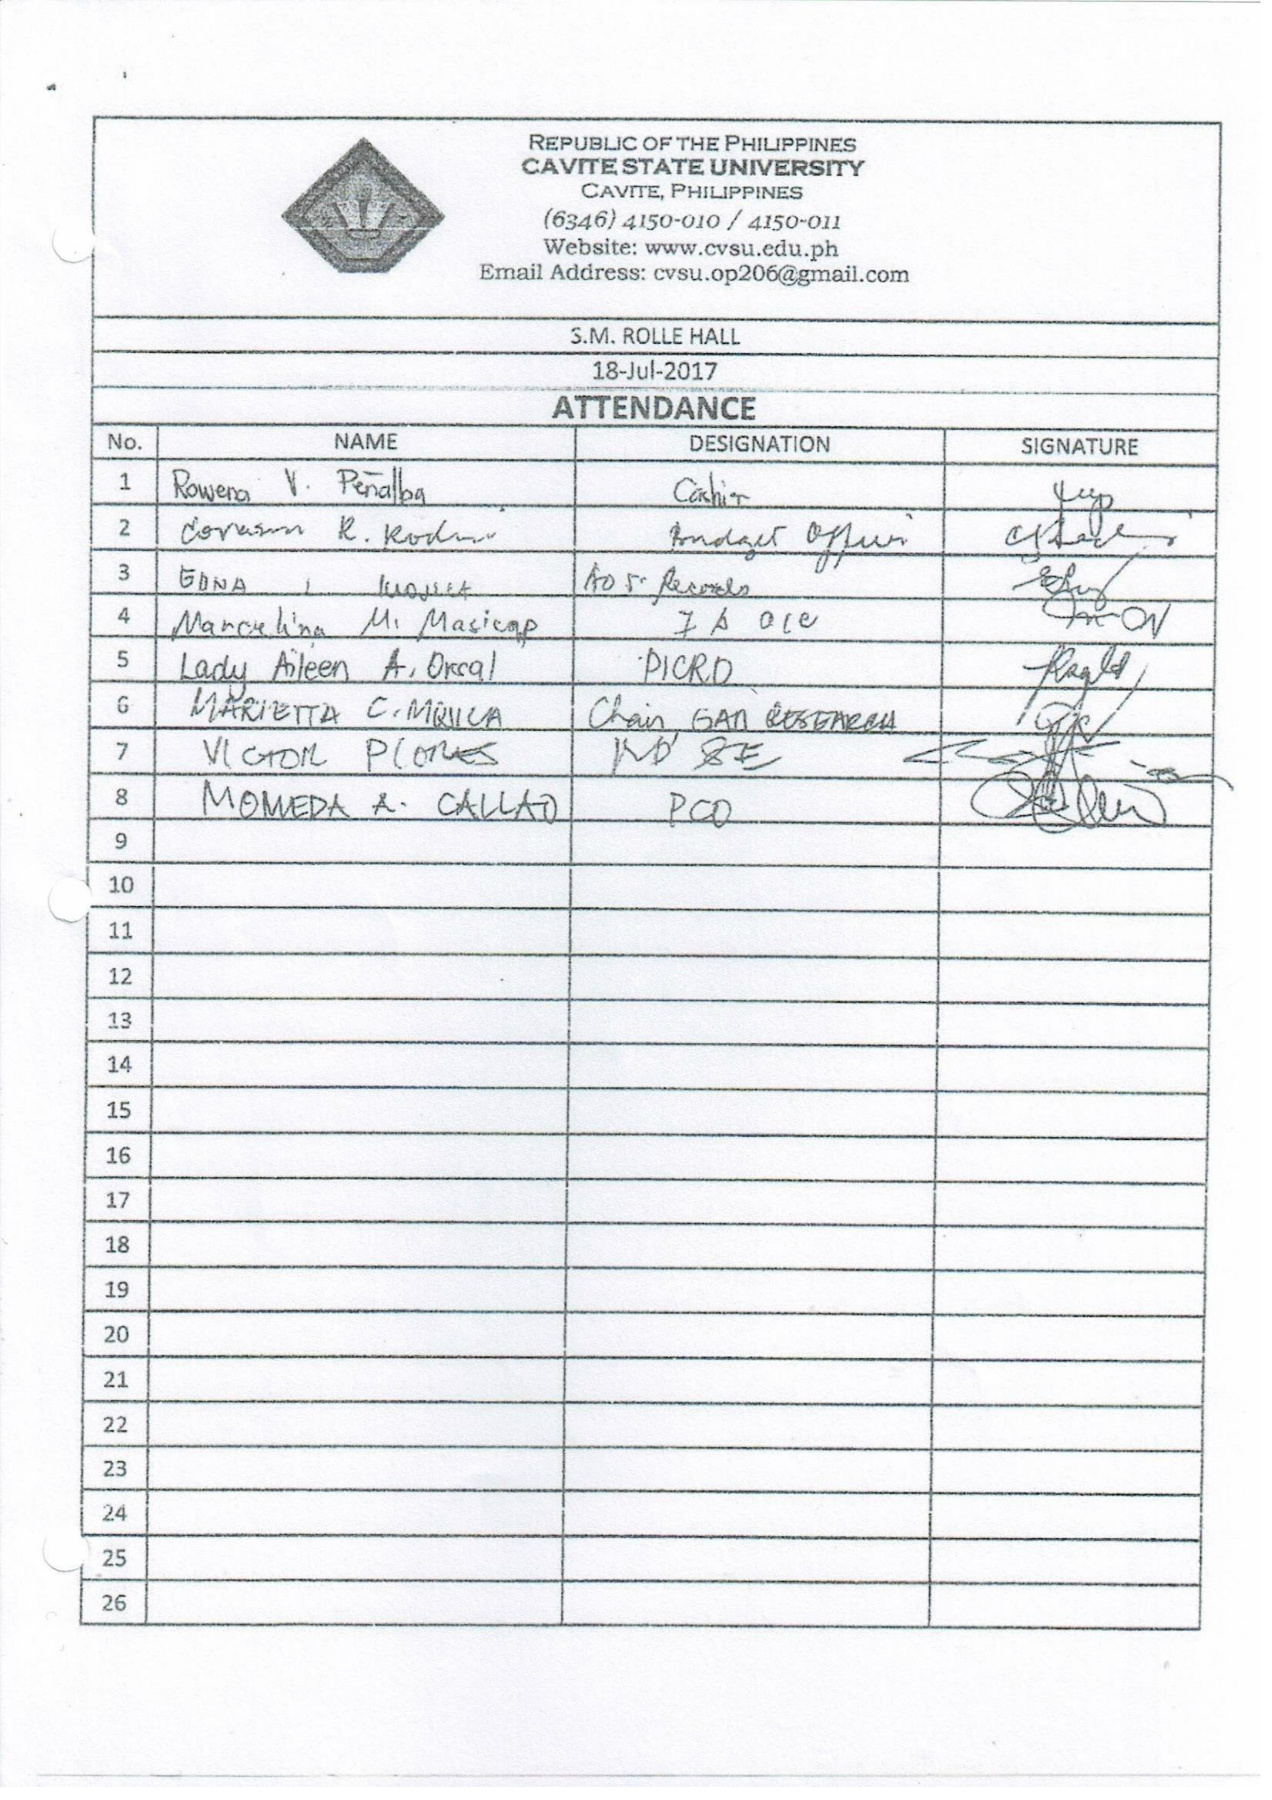 REPUBLIC OF THE PHILIPPINES
CAVITE STATE UNIVERSITY
CAVITE, PHILIPPINES
(6346) 4150-010 / 4150-011
Website: www.cvsu.edu.ph
Email Address: cvsu.op206@gmail.com
S.M. ROLLE HALL
18-Jul-2017
ATTENDANCE
No. NAME DESIGNATION SIGNATURE
1 Rowena V. Peñalba Cashier
2 R. Budget Officer
3 EDNA Records
4 Marcelina M. Masicap
5 Lady Aileen A. Orsal PICRD
6 MARIETTA C. MOJICA Chair GAD RESEARCH
7 VICTOR
8 A. CALLAO PCO
9
10
11
12
13
14
15
16
17
18
19
20
21
22
23
24
25
26